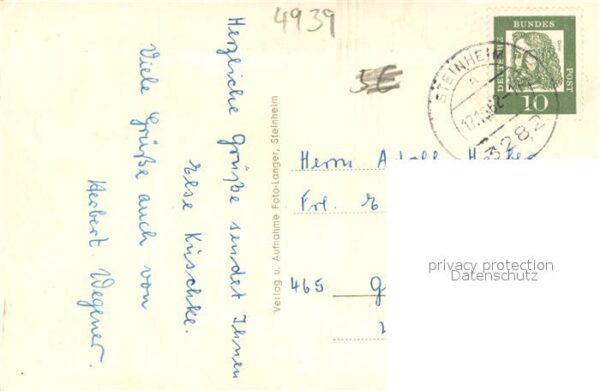 4939
5€
DEUTSCHE BUNDES POST
10
STEINHEIM
17.10.62
3282
Herzliche Grüße sendet Ihnen
Else Küschke.
Viele Grüße auch von
Herbert Wegener.
Verlag u. Aufnahme Foto-Langer, Steinheim
Herrn Adolf
Frl. E
465
privacy protection
Datenschutz